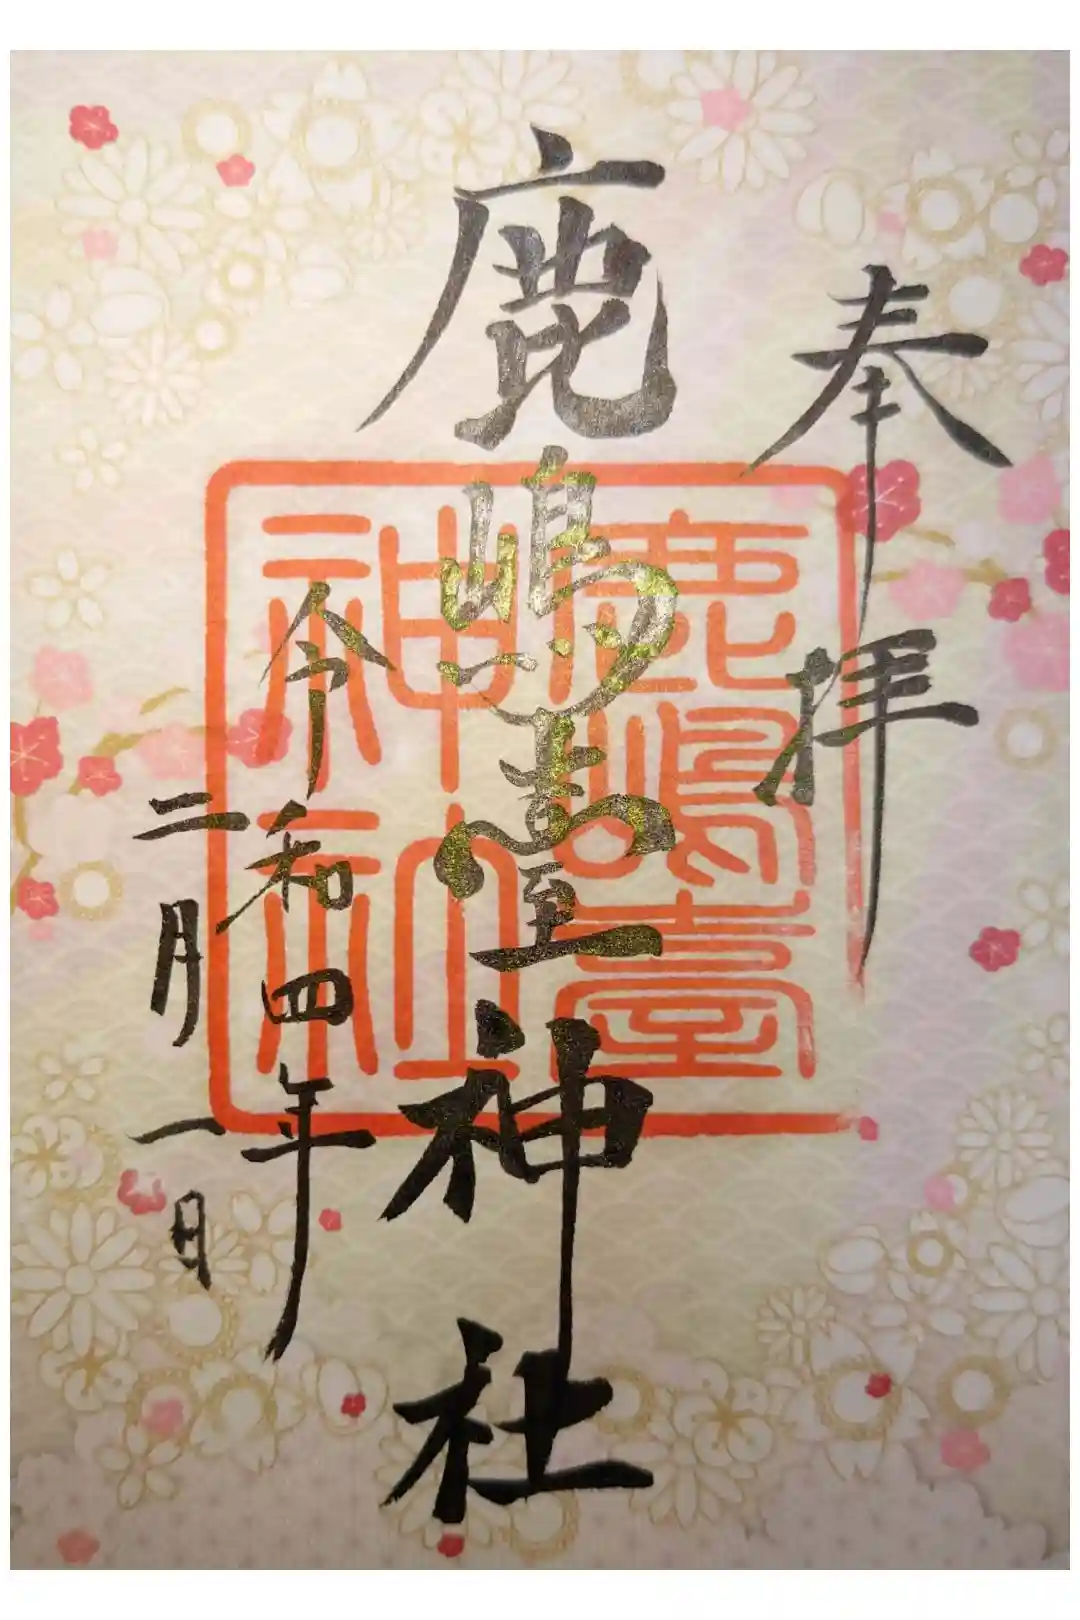 奉拝
鹿嶋臺神社
令和四年
二月一日
鹿嶋臺
神社